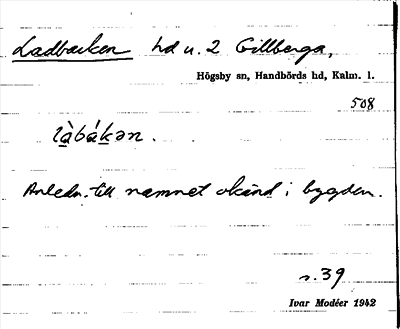 Ladbacken hd u. 2 Gillberga,
Högsby sn, Handbörds hd, Kalm. l.
508
làbákən.
Anledn. till namnet okänd i bygden.
s. 39
Ivar Modéer 1942